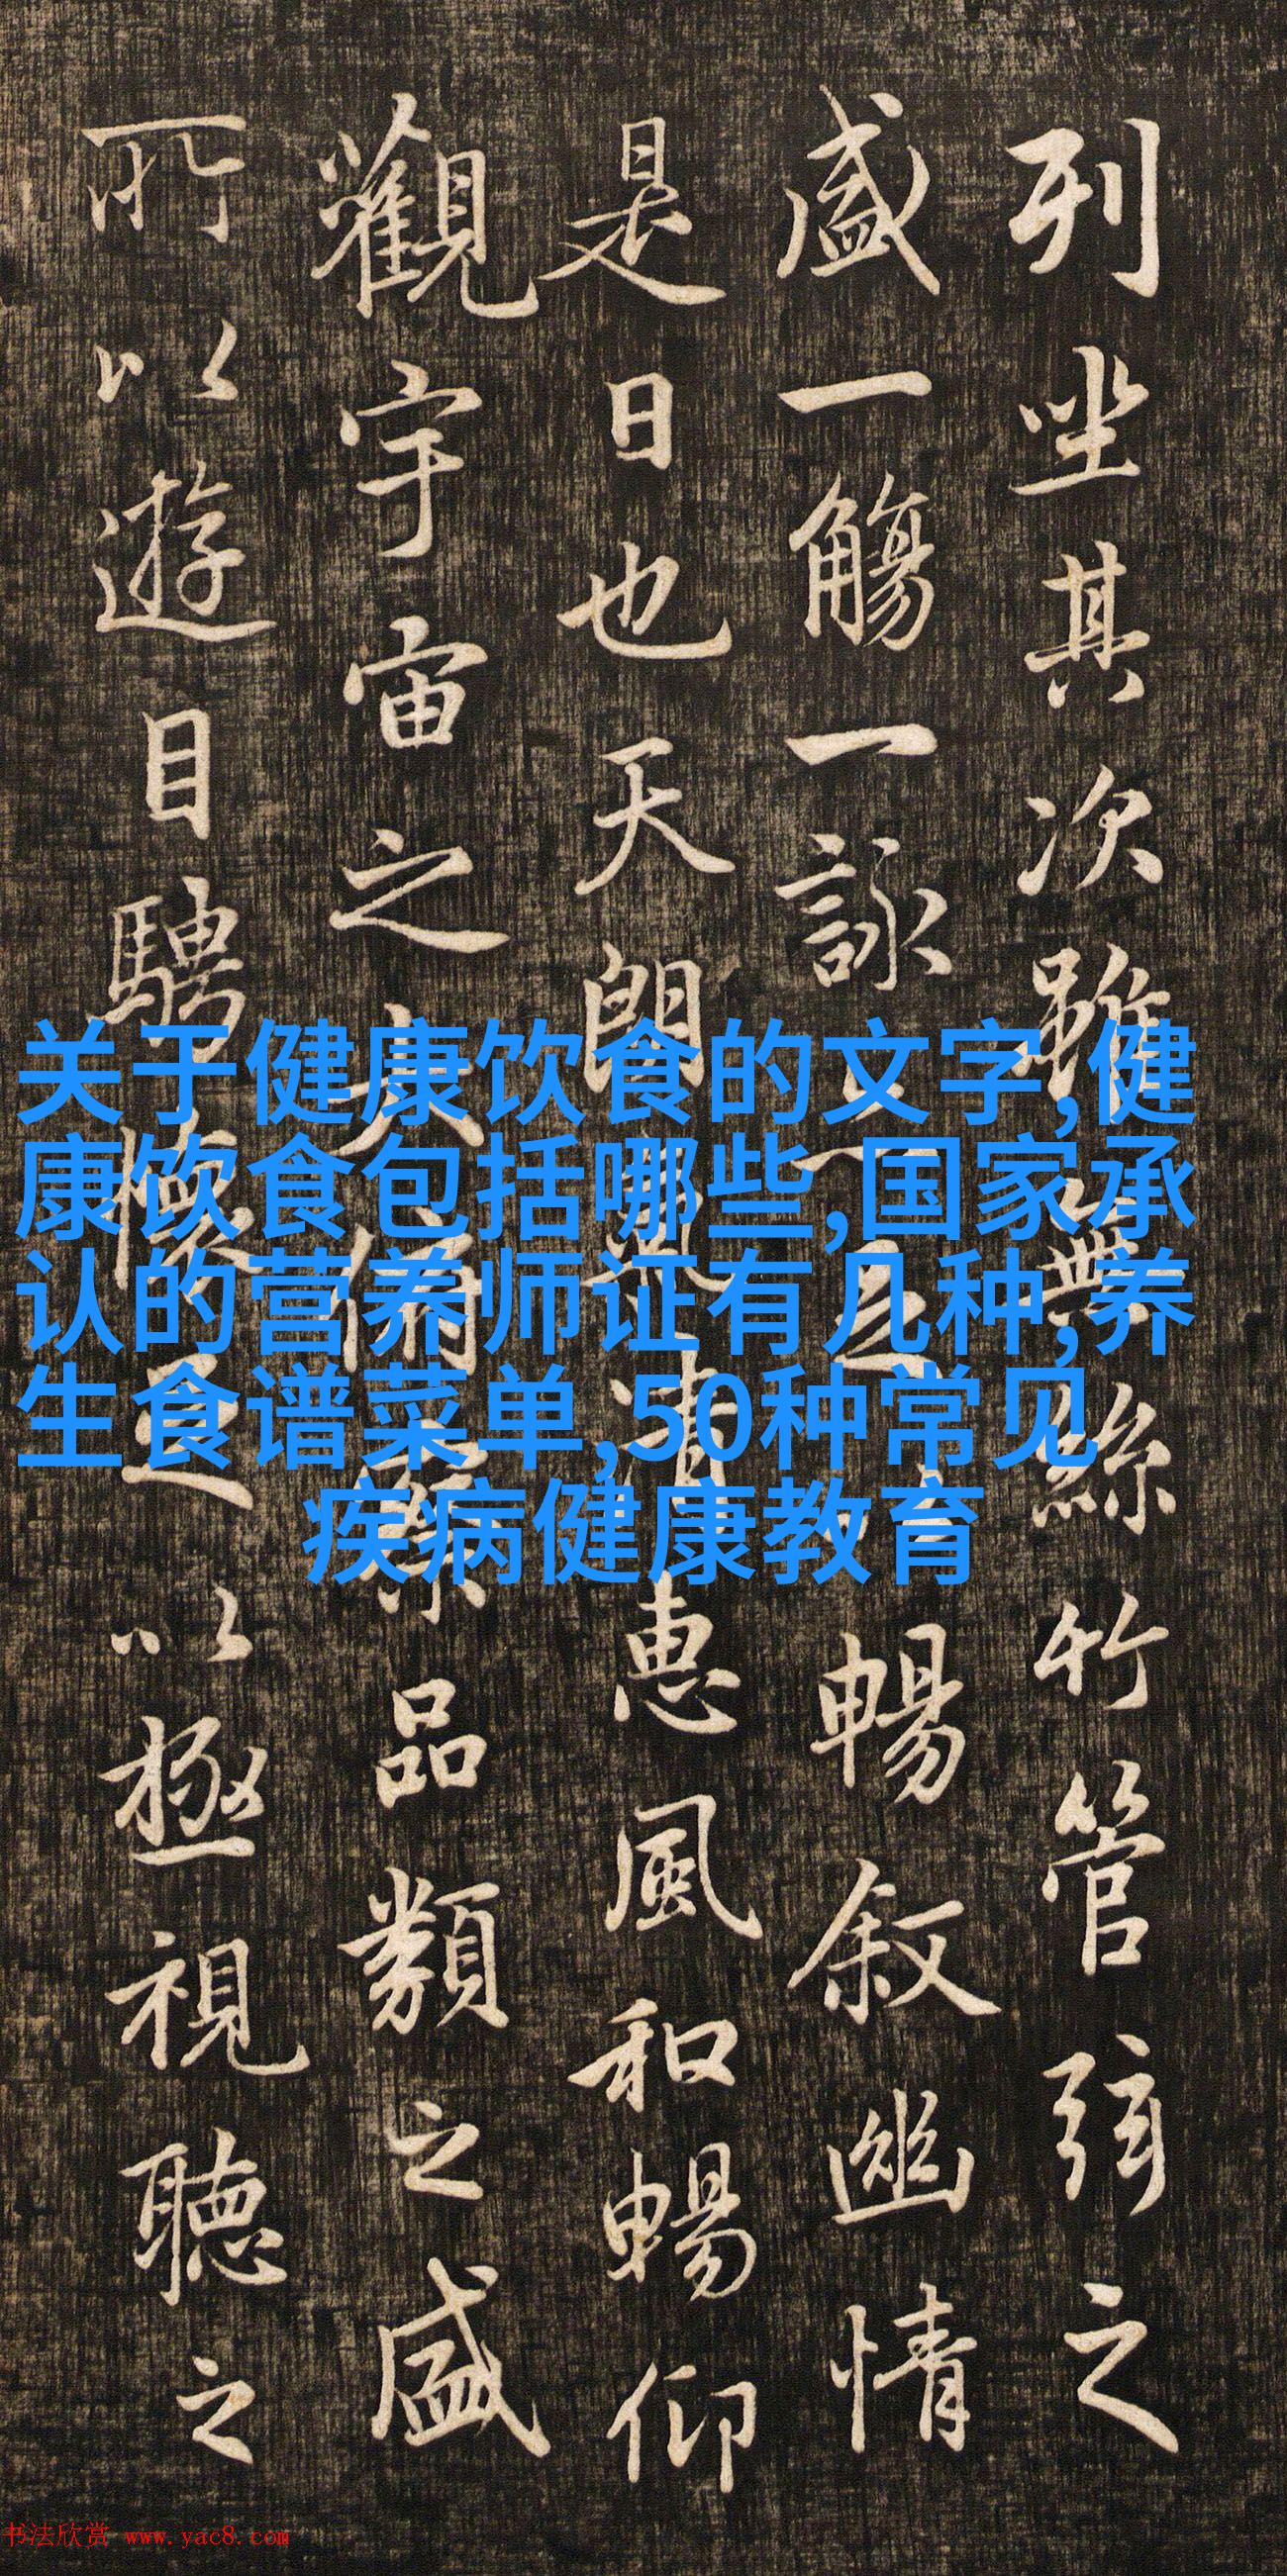 列坐其次雖無絲竹管弦之
盛一觴一詠足以暢叙幽情
是日也天朗氣清惠風和暢仰
觀宇宙之大俯察品類之盛
所以遊目騁懷足以極視聽之
关于健康饮食的文字,健
康饮食包括哪些,国家承
认的营养师证有几种,养
生食谱菜单,50种常见
疾病健康教育
书法欣赏 www.yac8.com